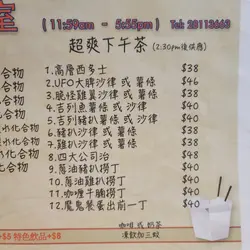 室
(11:30am - 5:55pm) Tel: 28113668
超爽下午茶 (2:30pm後供應)
合物 1.高層西多士 $38
2.UFO大脾沙律 或 薯條 $46
3.脆怪雞翼沙律 或 薯條 $40
4.吉列魚薯條 或 沙律 $40
5.吉列豬扒薯條 或 沙律 $40
水化合物 6.豬扒沙律 或 薯條 $40
化合物 7.雞扒沙律 或 薯條 $40
合物 8.四大公司治 $38
水化合物 9.蔥油豬扒撈丁 $40
10.蔥油雞扒撈丁 $40
合物 11.咖喱牛腩撈丁 $40
12.魔鬼餐蛋出前一丁 $40
咖啡 或 奶茶
凍飲加三蚊
+$5 特色飲品+$8